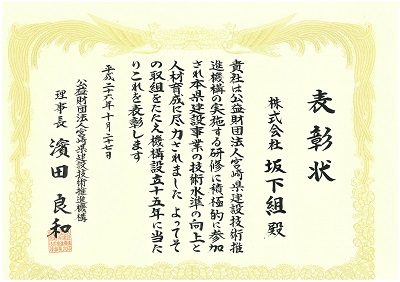 表彰状
株式会社 坂下組 殿
貴社は公益財団法人宮崎県建設技術推
進機構の実施する研修に積極的に参加
され本県建設事業の技術水準の向上と
人材育成に尽力されました よってそ
の取組をたたえ機構設立十五年に当た
りこれを表彰します
平成二十六年十月二十七日
公益財団法人宮崎県建設技術推進機構
理事長 濱田良和